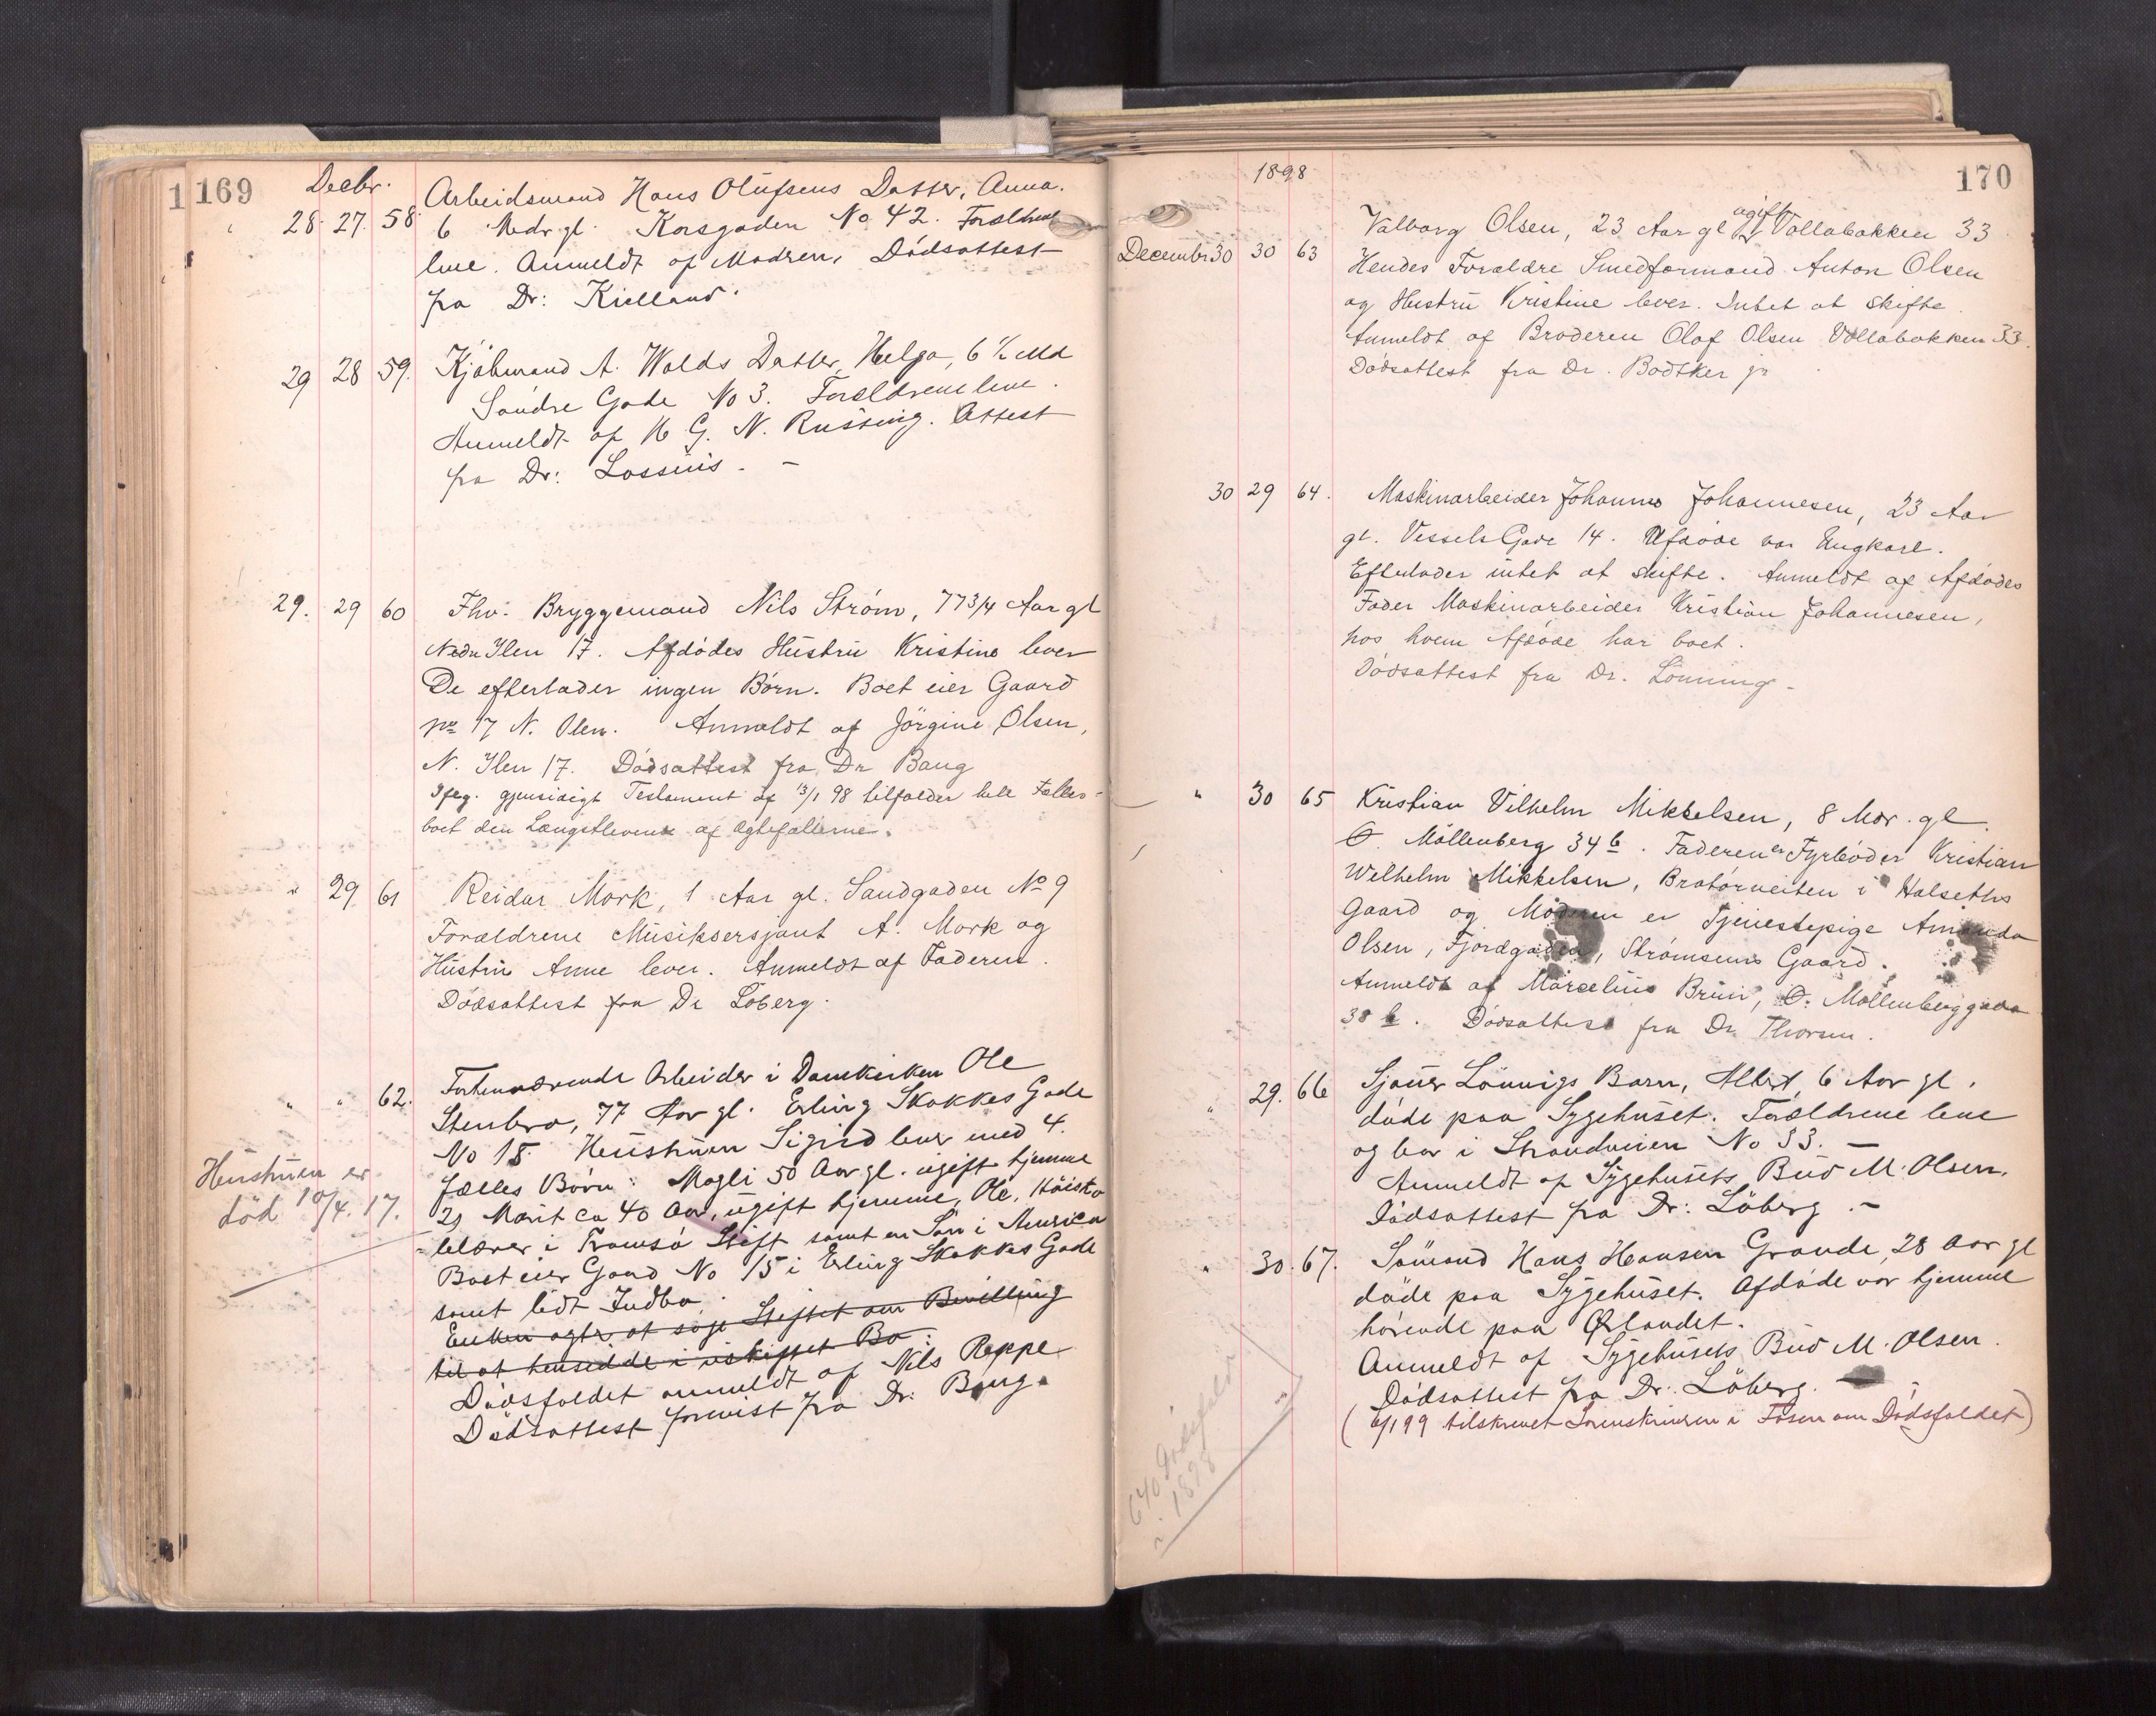 169 Decbr.
28. 27. 58 Arbeidsmand Hans Olufsens Datter, Anna.
6 Mdr gl. Korsgaden No 42. Forældrene
leve. Anmeldt af Modren, Dödsattest
fra Dr: Kielland.
29 28 59. Kjöbmand A. Wolds Datter, Helga, 6½ Md
Söndre Gade No 3. Forældrene leve.
Anmeldt af H G. N. Russing. Attest
fra Dr: Lossius. -
29. 29 60 Fhv. Bryggemand Nils Ström, 77 3/4 Aar gl
Nedre Ilen 17. Afdödes Hustru Kristine lever
De efterlader ingen Börn. Boet eier Gaard
No 17 N. Ilen. Anmeldt af Jörgine Olsen,
N. Ilen 17. Dödsattest fra Dr Bang
Iflg. gjensidigt Testament af 13/1 98 tilfalder hele Fælles-
boet den Længstlevende af Ægtefællerne.
" 29 61 Reidar Mork, 1 Aar gl. Sandgaden No 9
Forældrene Musiksersjant A. Mork og
Hustru Anne lever. Anmeldt af Faderen.
Dödsattest fra Dr Löberg.
" " 62. Forhenværende Arbeider i Domkirken Ole
Stenbro, 77 Aar gl. Erling Skakkes Gade
No 15. Hustruen Sigrid lever med 4.
fælles Börn: Magli 50 Aar gl. ugift hjemme
2) Marit ca 40 Aar, ugift hjemme, Ole, Höisko
lelærer i Tromsö Stift samt en Sön i America
Boet eier Gaard No 15 i Erling Skakkes Gade
samt lidt Indbo.
Enken agter at söge Stiftet om Bevilling
til at hensidde i uskiftet Bo.
Dödsfaldet anmeldt af Nils Reppe
Dödsattest forevist fra Dr. Bang.
Hustruen er
död 10/4. 17.
1898 170
Decembr 30 30 63 Valborg Olsen, 23 Aar gl ugift Vollabakken 33
Hendes Forældre Smedformand Anton Olsen
og Hustru Kristine lever. Intet at skifte.
Anmeldt af Broderen Olaf Olsen Vollabakken 33.
Dödsattest fra Dr. Bödtker jr
30 29 64. Maskinarbeider Johannes Johannesen, 23 Aar
gl. Vessels Gade 14. Afdöde var Ungkarl.
Efterlader intet at skifte. Anmeldt af Afdödes
Fader Maskinarbeider Kristian Johannesen,
hos hvem Afdöde har boet.
Dödsattest fra Dr. Lönning -
" 30 65 Kristian Vilhelm Mikkelsen, 8 Mdr. gl.
Ö. Möllenberg 34 b. Faderen er Fyrböder Kristian
Wilhelm Mikkelsen, Bratörveiten i Halseths
Gaard og Moderen er Tjenestepige Amanda
Olsen, Fjordgaden, Strömsens Gaard.
Anmeldt af Marcelius Brun, Ö. Möllenberggade
38 b. Dödsattest fra Dr. Thorsen.
" 29. 66 Sjauer Lönnigs Barn, Albert, 6 Aar gl.
döde paa Sygehuset. Forældrene leve
og bor i Strandveien No 33. -
Anmeldt af Sygehusets Bud M. Olsen.
Dödsattest fra Dr: Löberg. -
" 30. 67. Sömand Hans Hansen Grande, 28 Aar gl
döde paa Sygehuset. Afdöde var hjemme
hörende paa Ørlandet.
Anmeldt af Sygehusets Bud M. Olsen.
Dödsattest fra Dr: Löberg.
(6/1 99 tilskrevet Sorenskriveren i Fosen om Dödsfaldet)
640 Dödsfald
i 1898